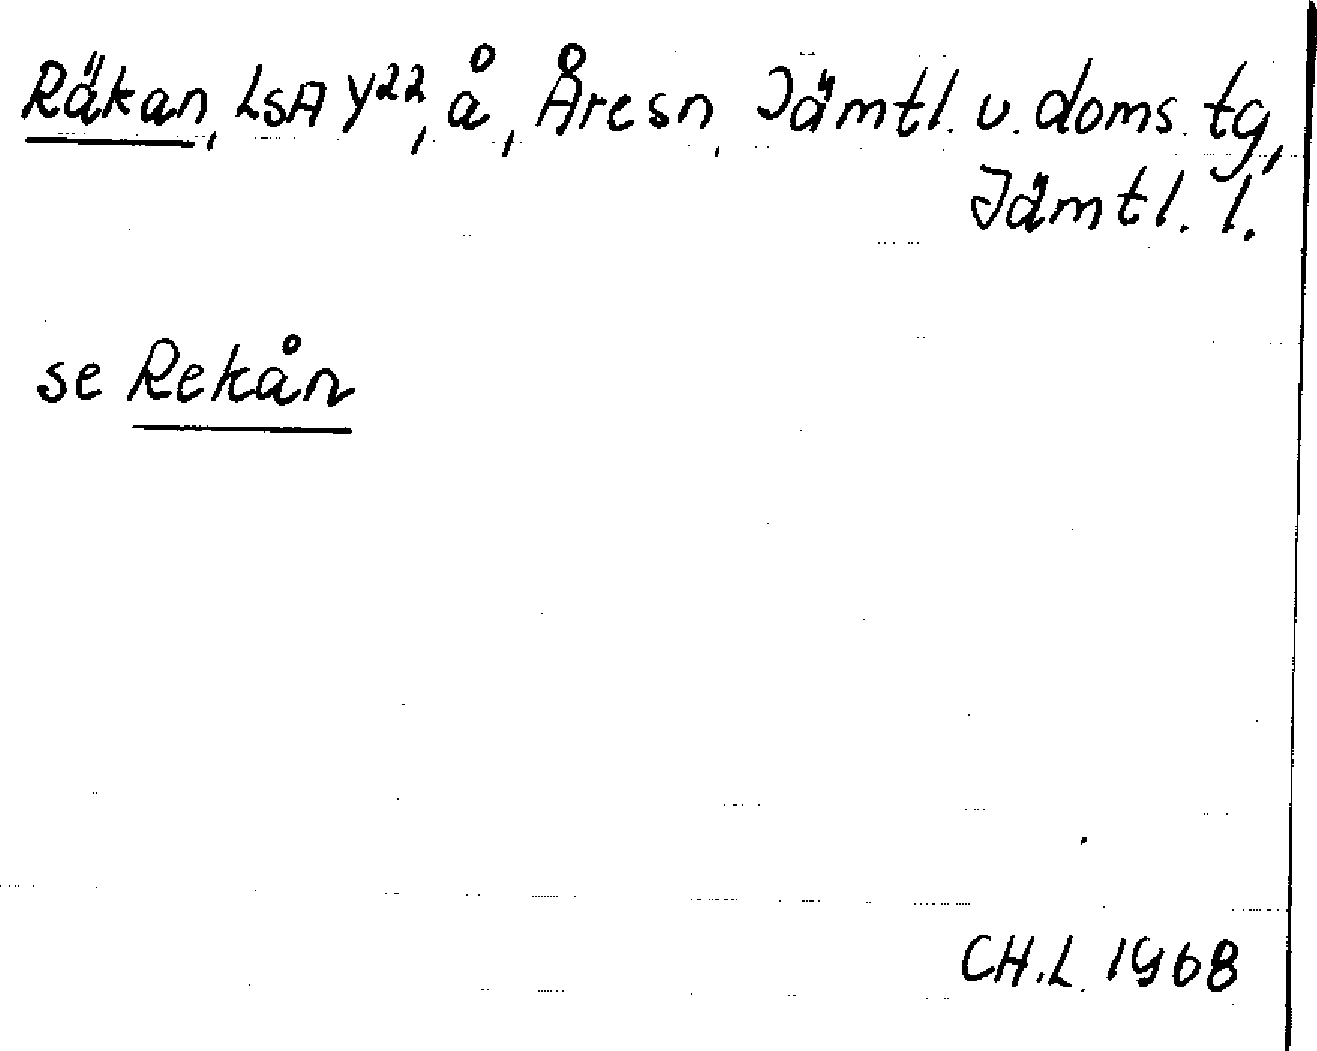 Räkan, LSA Y22, å, Åre sn, Jämtl. v. doms. tg,
Jämtl. l.
se Rekån
CH.L. 1968